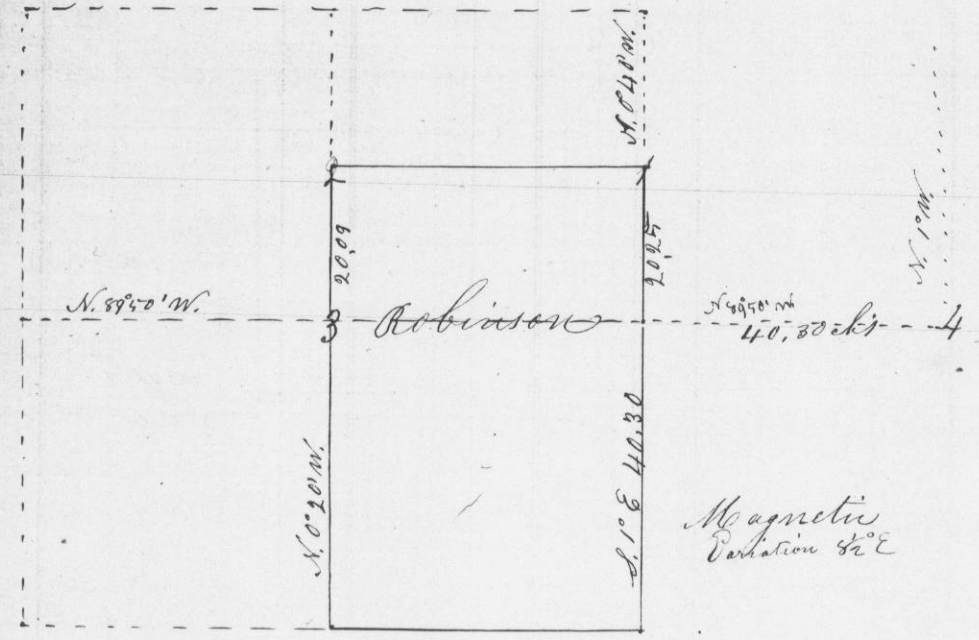 N. 0°40' W.
2
1
20,09
20,25
N. 1° W.
N. 89°50' W.
3
Robinson
N 89°50' W
40,30 chs
4
N. 0°20' W.
S. 1° E 40,30
Magnetic
Variation 8½° E